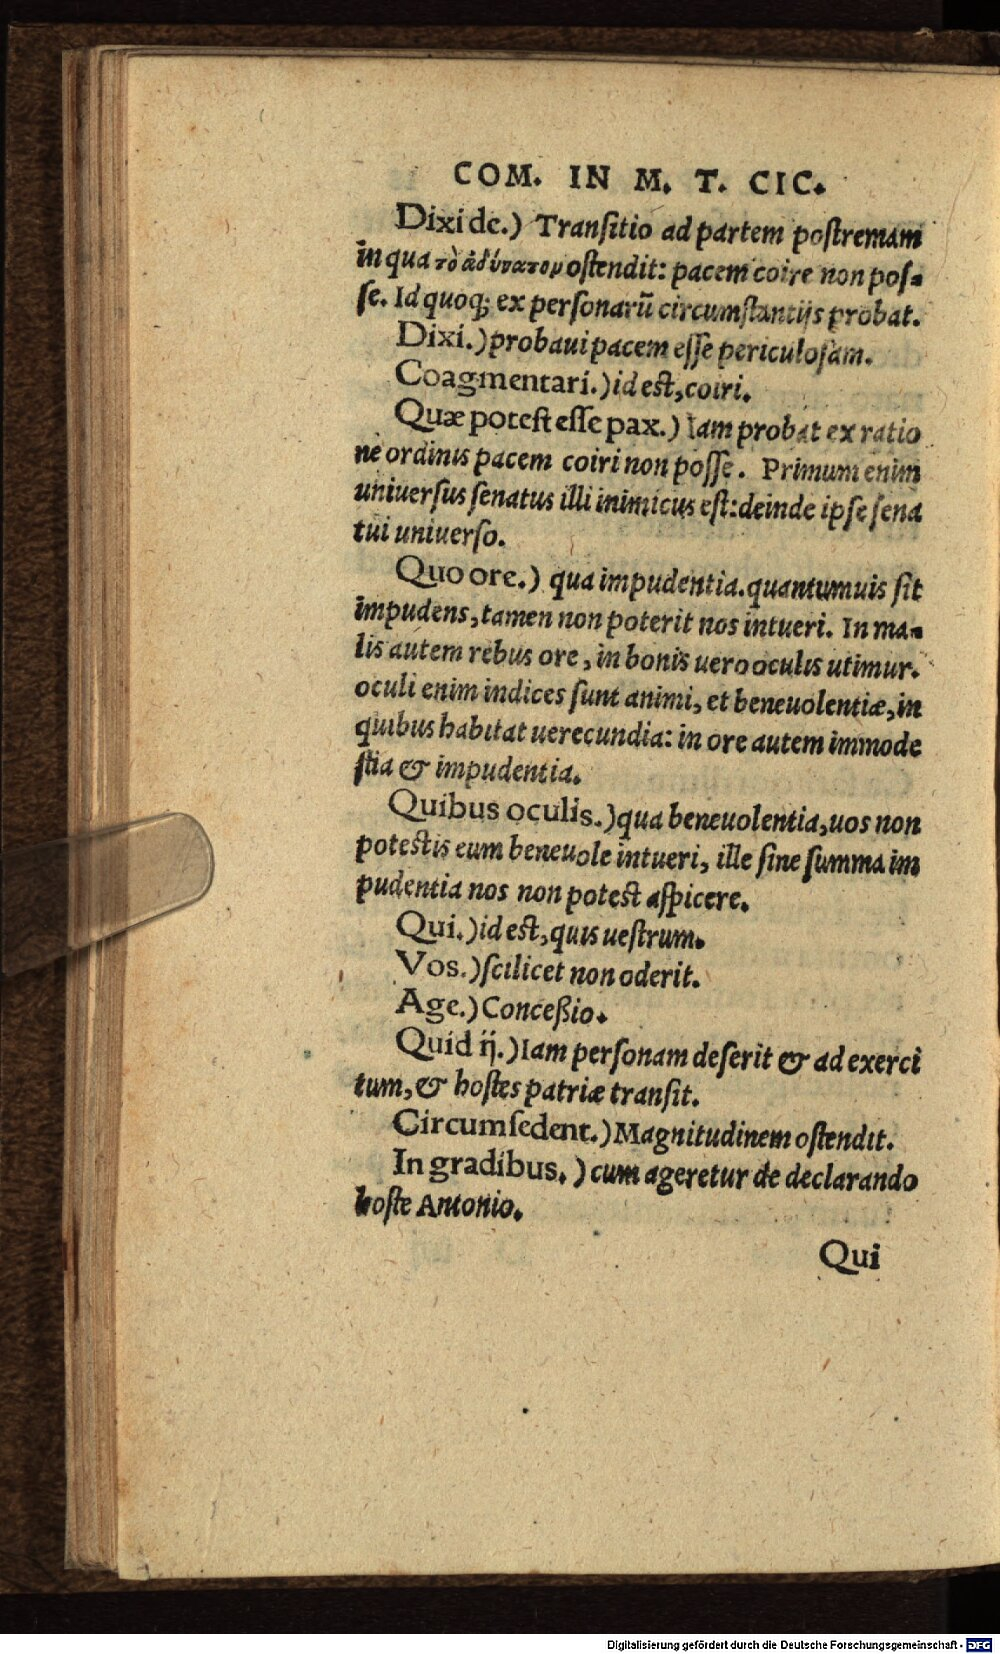 COM. IN M. T. CIC.
Dixi de.) Transitio ad partem postremam
in qua τὸ ἀδύνατομ ostendit: pacem coire non pos-
se. Id quoq; ex personarũ circumstantijs probat.
Dixi.) probaui pacem esse periculosam.
Coagmentari.) id est, coiri.
Quæ potest esse pax.) Iam probat ex ratio
ne ordinis pacem coiri non posse. Primum enim
uniuersus senatus illi inimicus est: deinde ipse sena
tui uniuerso.
Quo ore.) qua impudentia. quantumuis sit
impudens, tamen non poterit nos intueri. In ma-
lis autem rebus ore, in bonis uero oculis utimur.
oculi enim indices sunt animi, et beneuolentiæ, in
quibus habitat uerecundia: in ore autem immode
stia & impudentia.
Quibus oculis.) qua beneuolentia, uos non
potestis eum beneuole intueri, ille sine summa im
pudentia nos non potest aspicere.
Qui.) id est, quis uestrum.
Vos.) scilicet non oderit.
Age.) Conceßio.
Quid ij.) Iam personam deserit & ad exerci
tum, & hostes patriæ transit.
Circumsedent.) Magnitudinem ostendit.
In gradibus.) cum ageretur de declarando
hoste Antonio.
Qui
Digitalisierung gefördert durch die Deutsche Forschungsgemeinschaft - DFG